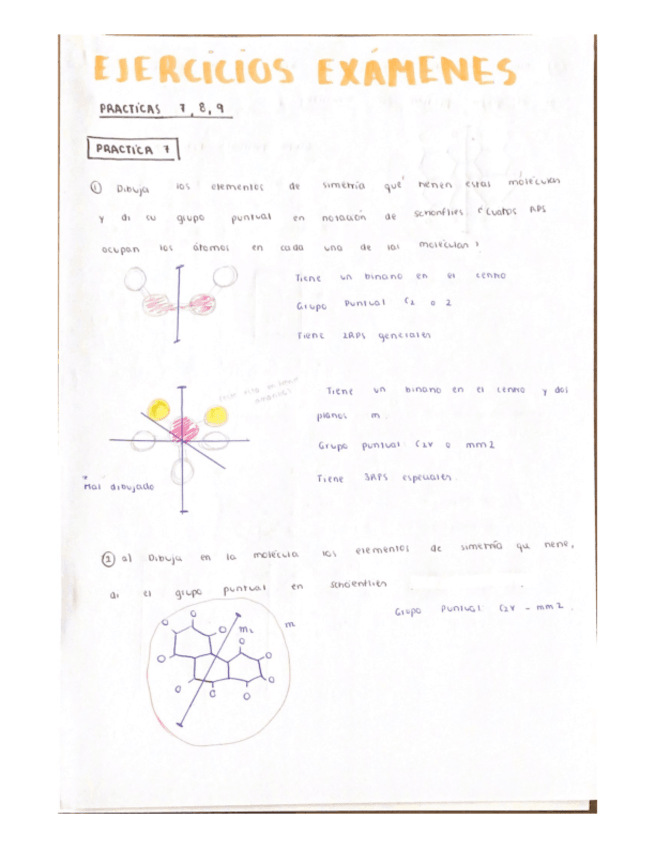 EJERCICIOS EXÁMENES
PRACTICAS 7, 8, 9
PRACTICA 7
① Dibuja los elementos de simetría que tienen estas moléculas
y di su grupo puntual en notación de schonflies ¿Cuatos APS
ocupan los átomos en cada una de las moleculas?
Tiene un binario en el centro
Grupo Puntual C2 o 2
Tiene 2APS generales
Tiene un binario en el centro y dos
planos m.
Grupo puntual C2v o mm2
Tiene 3APS especiales.
Mal dibujado
② a) Dibuja en la molécula los elementos de simetría que tiene,
di el grupo puntual en schoenflies
Grupo Puntual C2v - mm2.
O O O m2 m
O O O
O O O O